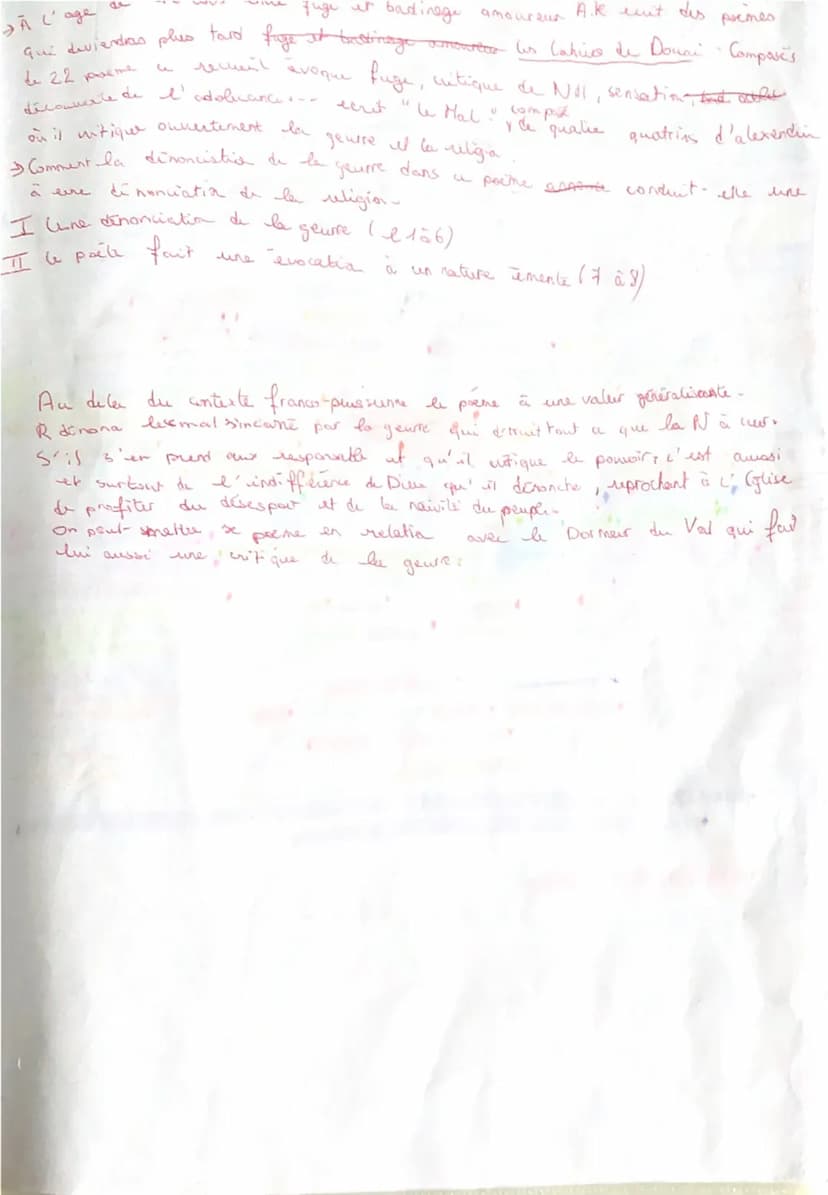 → À l'age de fuge et badinage amoureux A.R ecrit des poèmes
qui deviendras plus tard fuge et badinage amoureux les Cahiers de Douai. Composés
de 22 poème ce recueil évoque fuge, critique de NIII, sensation,
découverte de l'adolescance... ecrit "Le Mal". composé
où il critique ouvertement la geurre et la religion. de quatre quatrins d'alexendrin
→ Comment la dénonciation de la geurre dans ce poème conduit-elle une
à une dénonciation de la religion.
I Une dénonciation de la geurre (l 1 à 6)
II Le poète fait une évocation à un nature émente (7 à 8)
Au dela du contexte franco-prussienne le poème à une valeur généralisante.
R dénona le mal s'incarné par la geurre qui détruit tout ce que la N à creer.
S'il s'en prend aux responsable et qu'il critique le pouvoir, c'est aussi
et surtout de l'indifférence de Dieu qu'il dénonche, reprochent à l'Eglise
de profiter du désespoir et de la naiveté du peuple.
On peut smettre se poème en relation avec le Dormeur du Val qui fait
lui aussi une critique de la geurre.